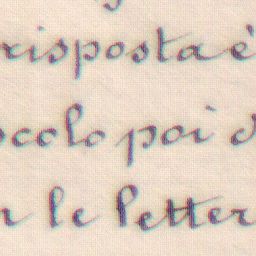 risposta è
colo poi
le letter